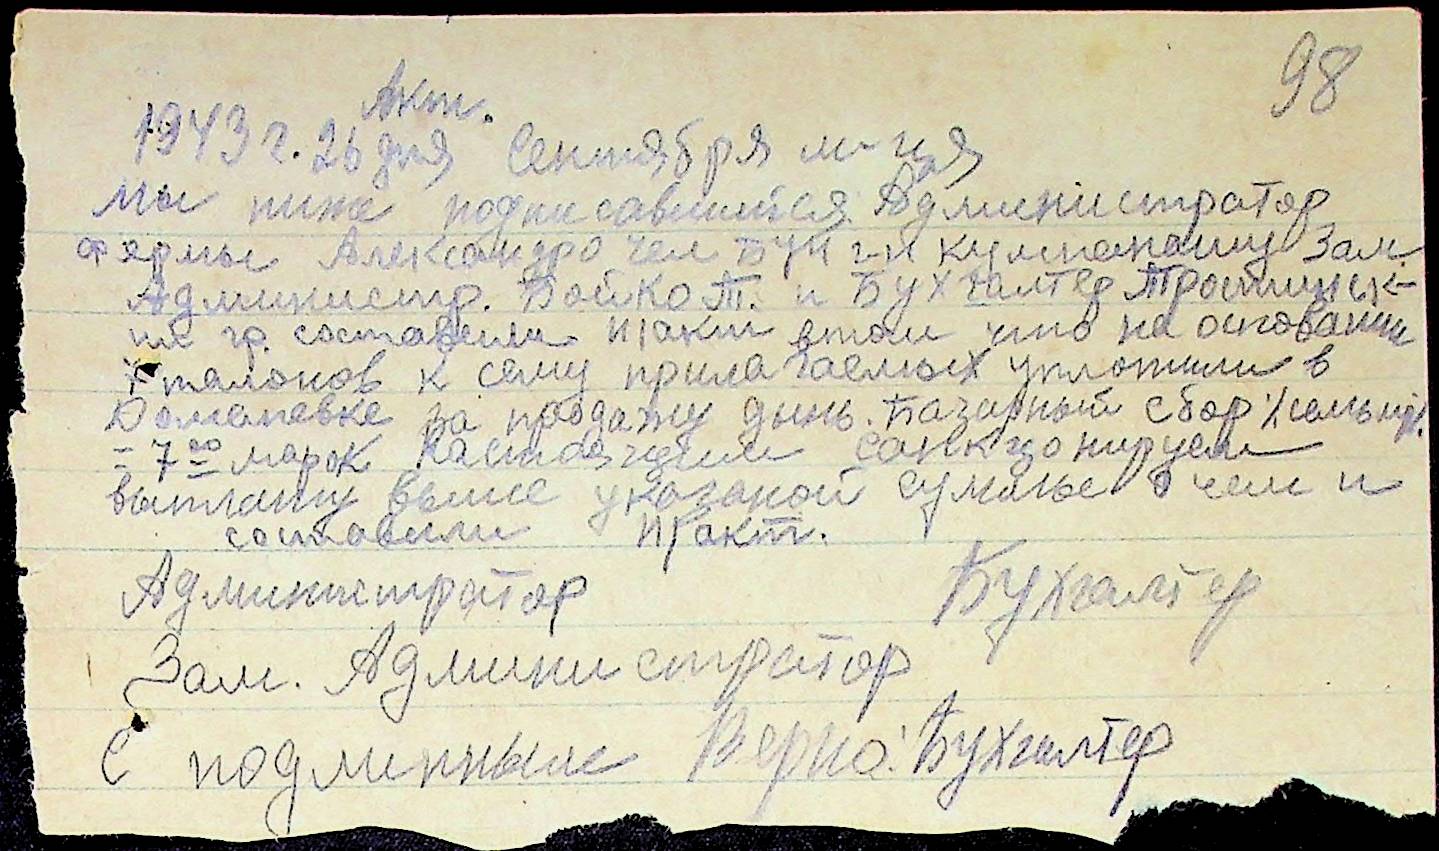 98
Акт.
1943 г. 26 дня Сентября м-ця
Мы ниже подписавшийся Администратор
фермы Александро чел Зам.
Администр. Бойко Т. и Бухгалтер
гр. составили н/акт втом что на основании
7 талонов к сему прилагаемых уплотили в
Доманевке за продажу дынь. Базарный сбор
= 7 00 марок Настоящим санкцонируем
выплату выше указаной суммые о чем и
составили н/акт.
Администратор Бухгалтер
Зам. Администратор
С подлинныме Верно: Бухгалтер